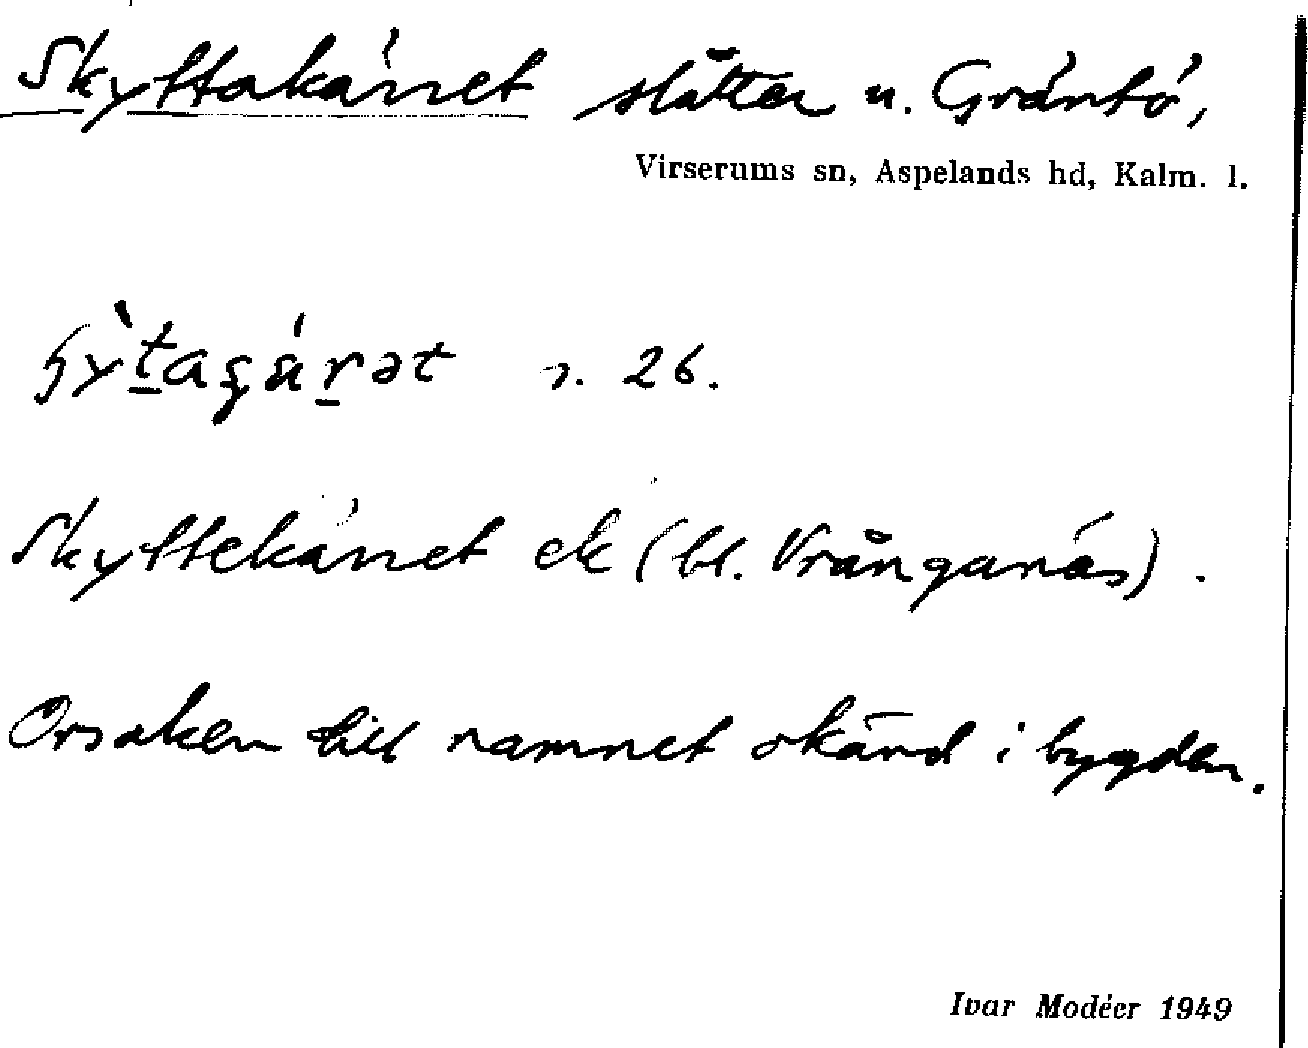 Skyttakärret slåtter u. Gräntö,
Virserums sn, Aspelands hd, Kalm. l.
s. 26.
Skyttekärret ek (bl. Vrånganäs).
Orsaken till namnet okänd i bygden.
Ivar Modéer 1949